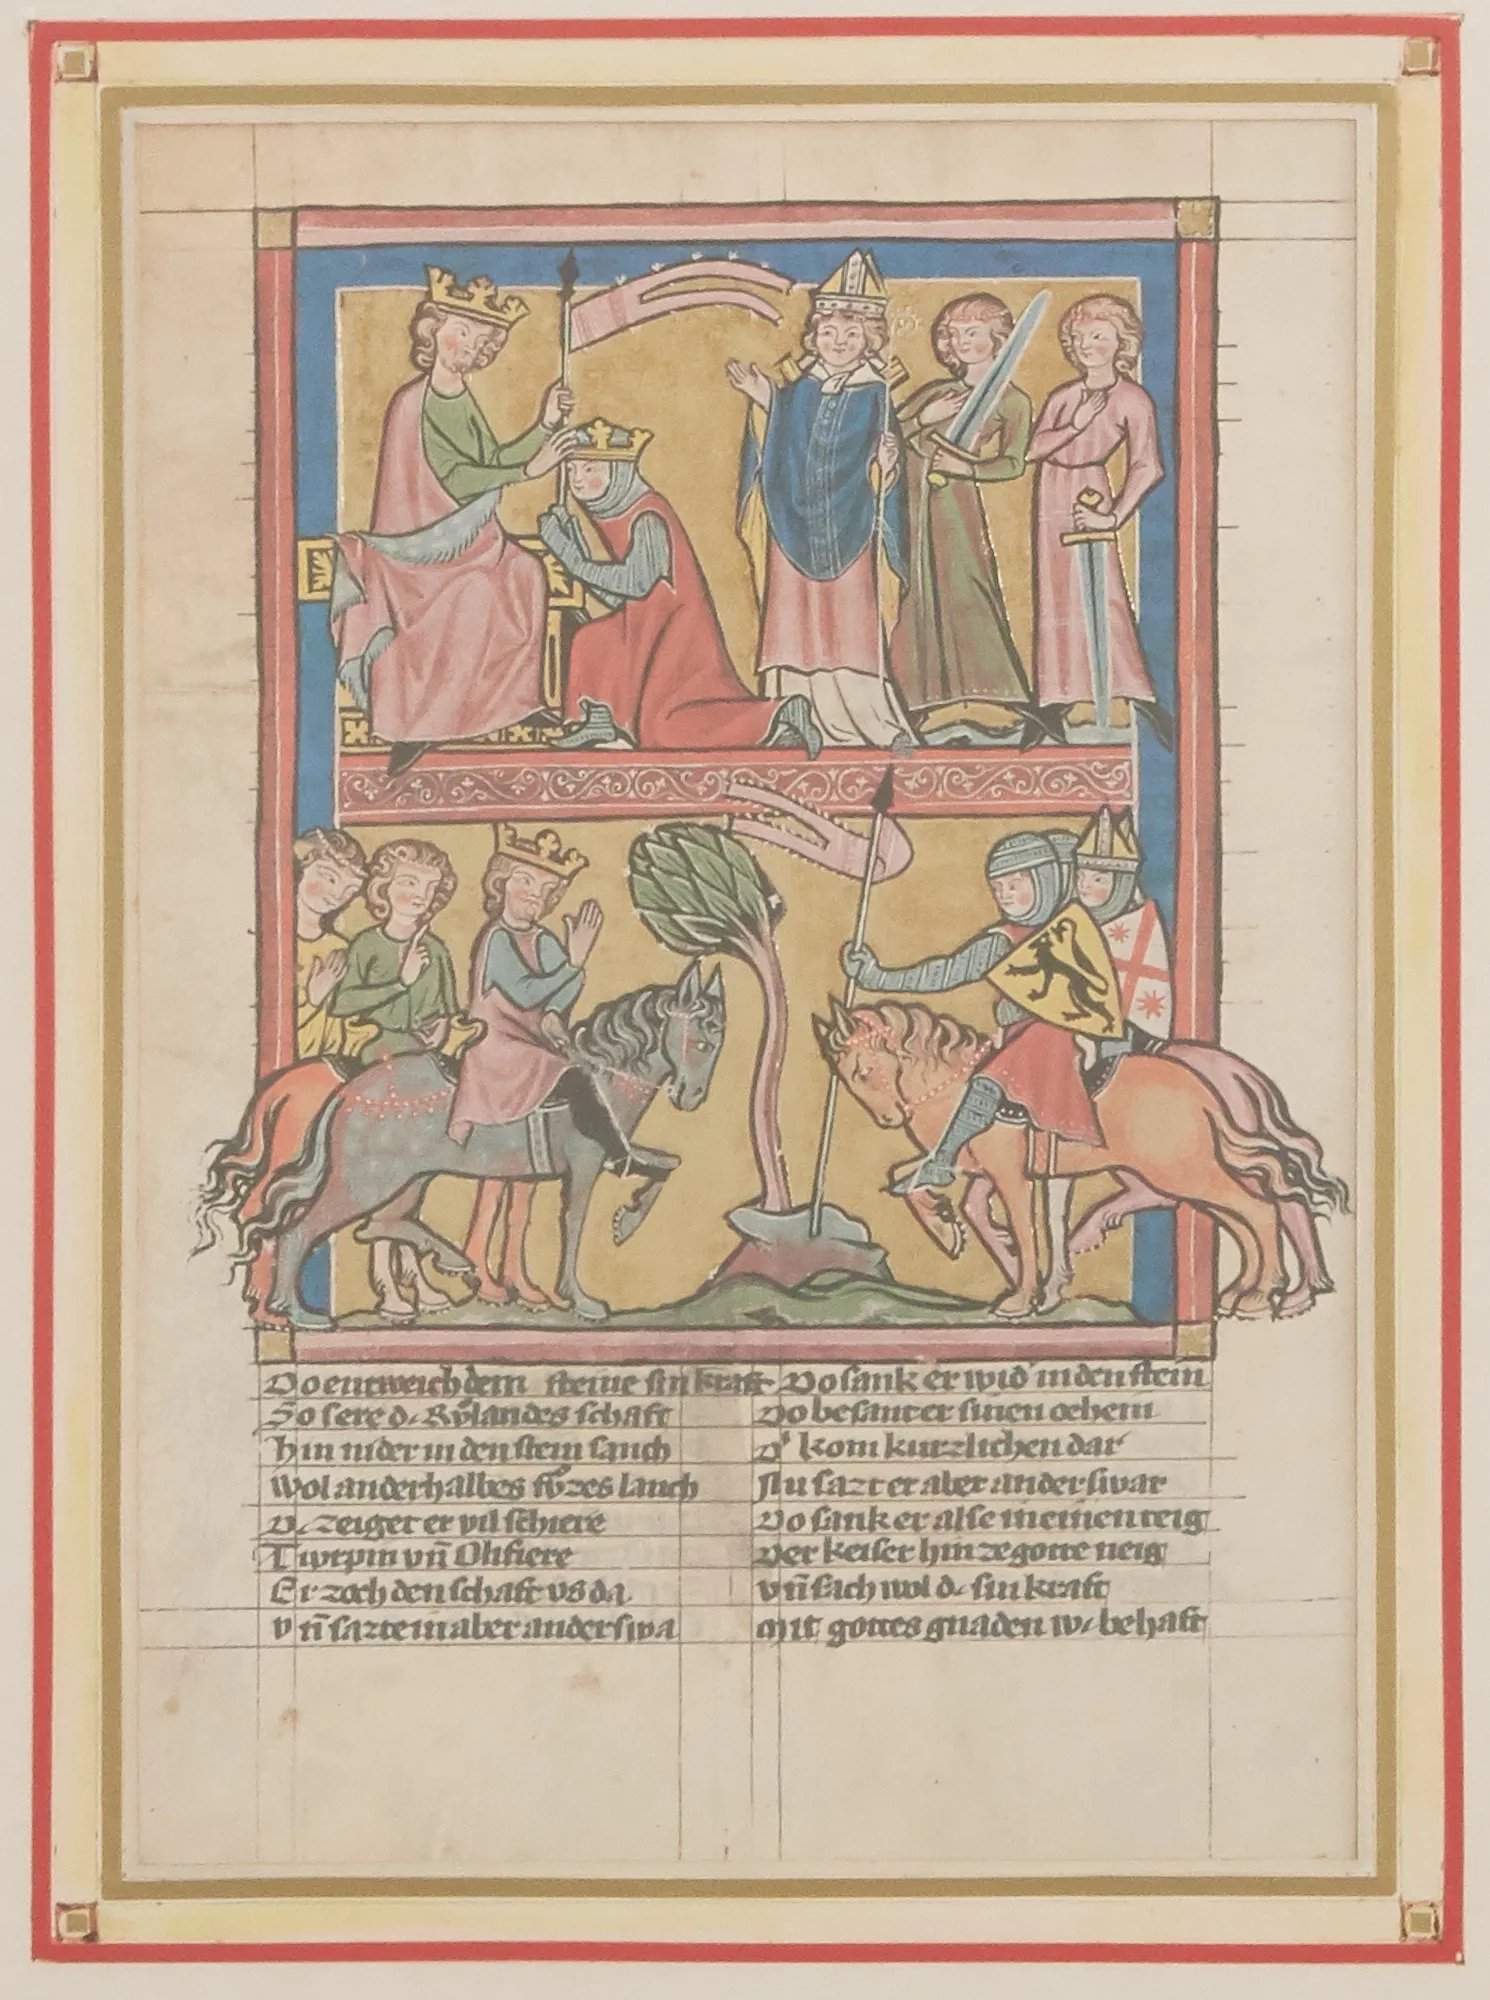 Do entweich dem steine sin kraft
So sere d᷒ Rv̊landes schaft
hin nider in den stein sanch
Wol anderhalbes fv̊zes lanch
D᷒ zeiget er vil schiere
Turpin vn̄ Olifiere
Er zoch den schaft vs da
vn̄ sazte in aber anderswa
Do sank er wid' in den stein
Do besant er sinen oehein
D' kom kurzlichen dar
Nu sazt er aber anderswar
Do sank er alse in einen teig
Der keiser hin ze gotte neig
vn̄ sach wol d᷒ sin kraft
mit gottes gnaden w᷒ behaft